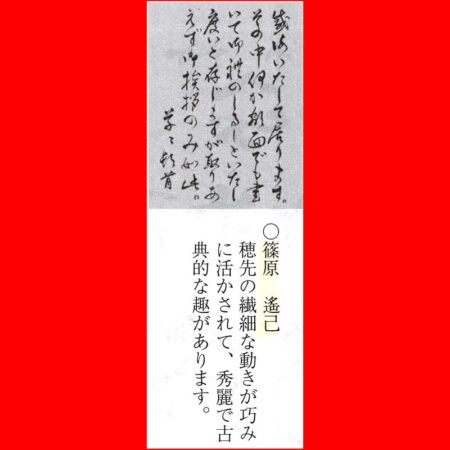 感謝いたして居ります。
その中何か額面でも書
いて御礼のしるしといたし
度いと存じますが取りあ
えず御挨拶のみ如此。
草々頓首
○篠原　遙己
穂先の繊細な動きが巧み
に活かされて、秀麗で古
典的な趣があります。